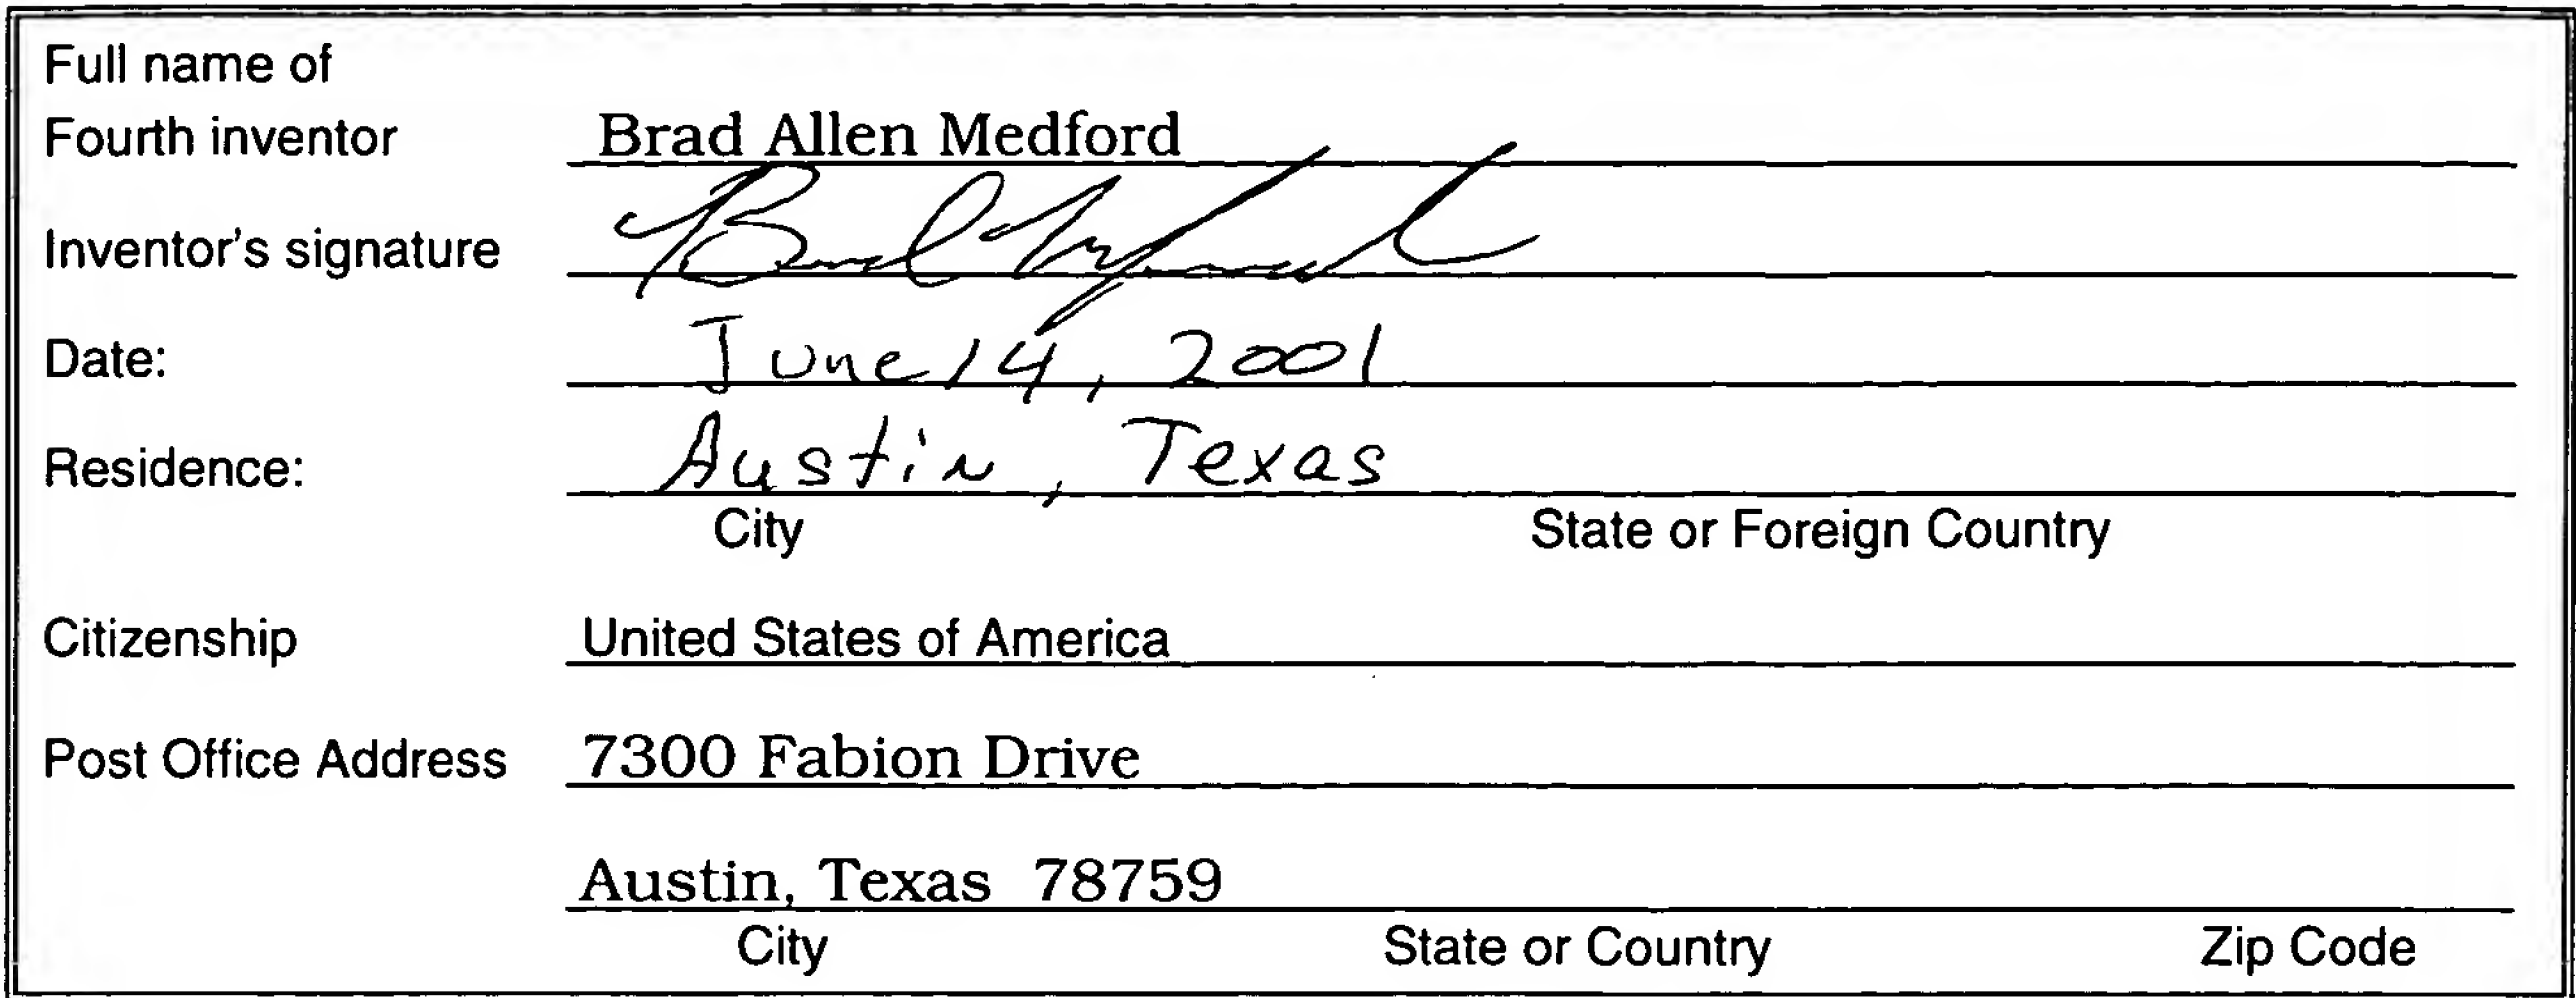 Full name of
Fourth inventor Brad Allen Medford
Inventor's signature Brad Medford
Date: June 14, 2001
Residence: Austin, Texas
City State or Foreign Country
Citizenship United States of America
Post Office Address 7300 Fabion Drive
Austin, Texas 78759
City State or Country Zip Code